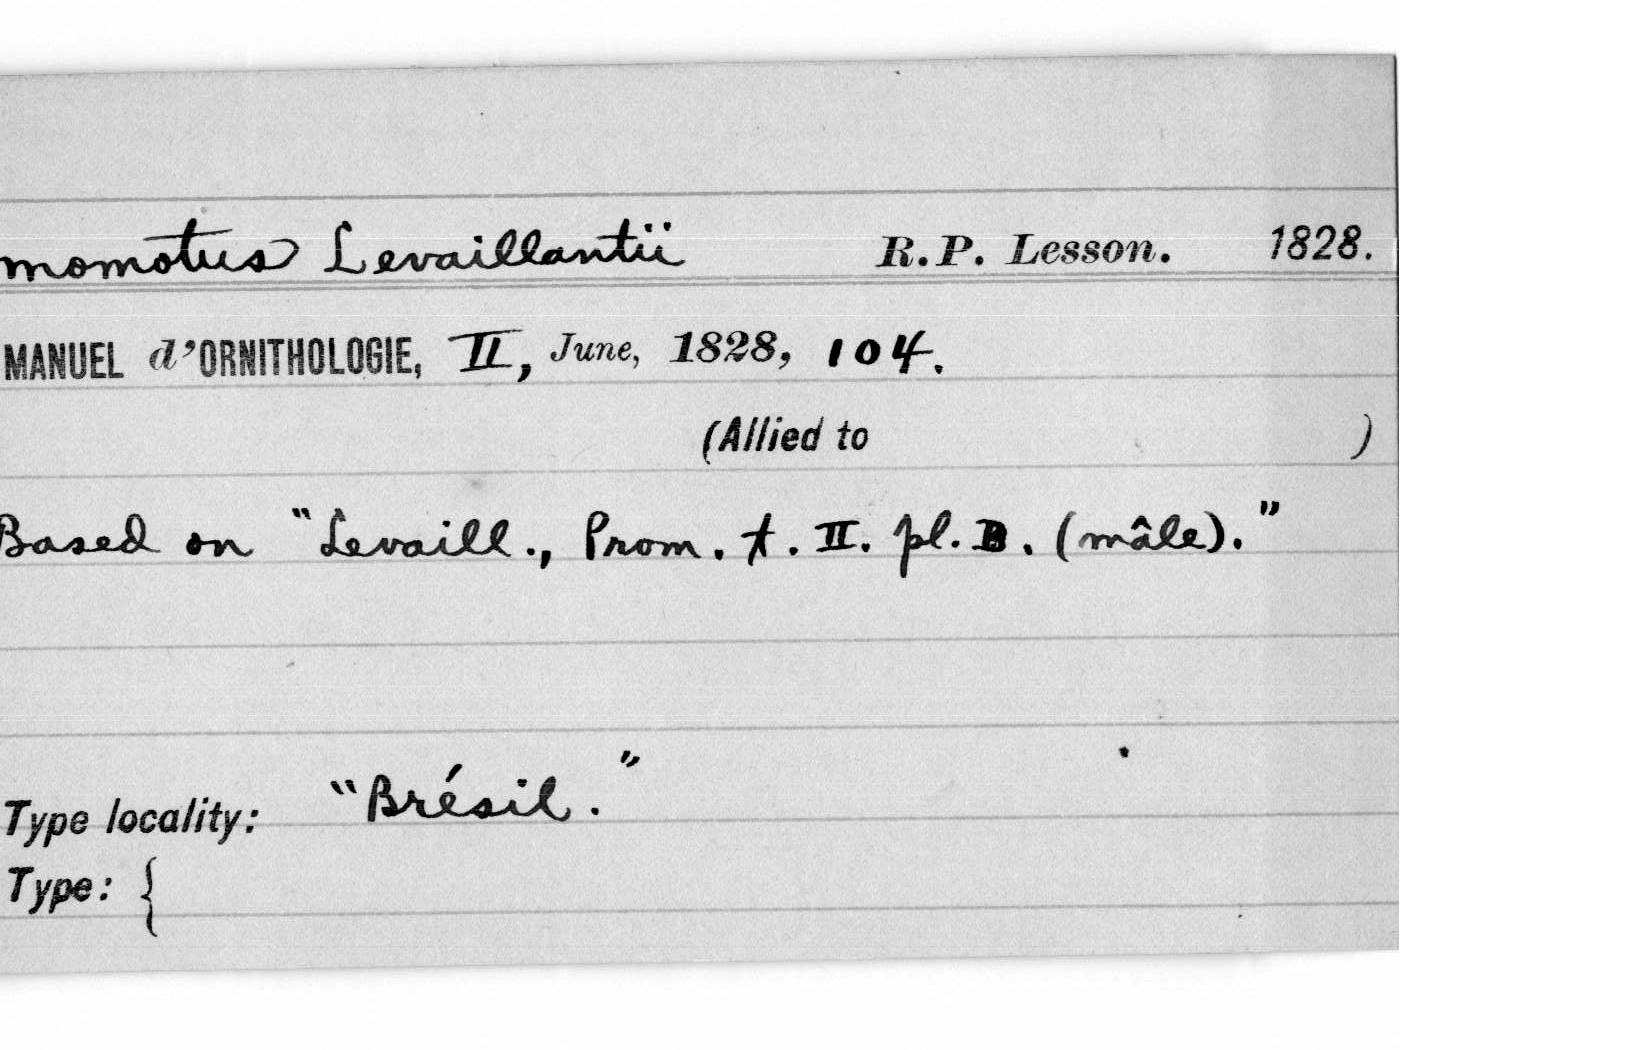 momotus Levaillantii R.P. Lesson. 1828.
MANUEL d'ORNITHOLOGIE, II, June, 1828, 104.
(Allied to )
Based on "Levaill., Prom. t. II. pl. B. (mâle)."
Type locality: "Brésil."
Type: {